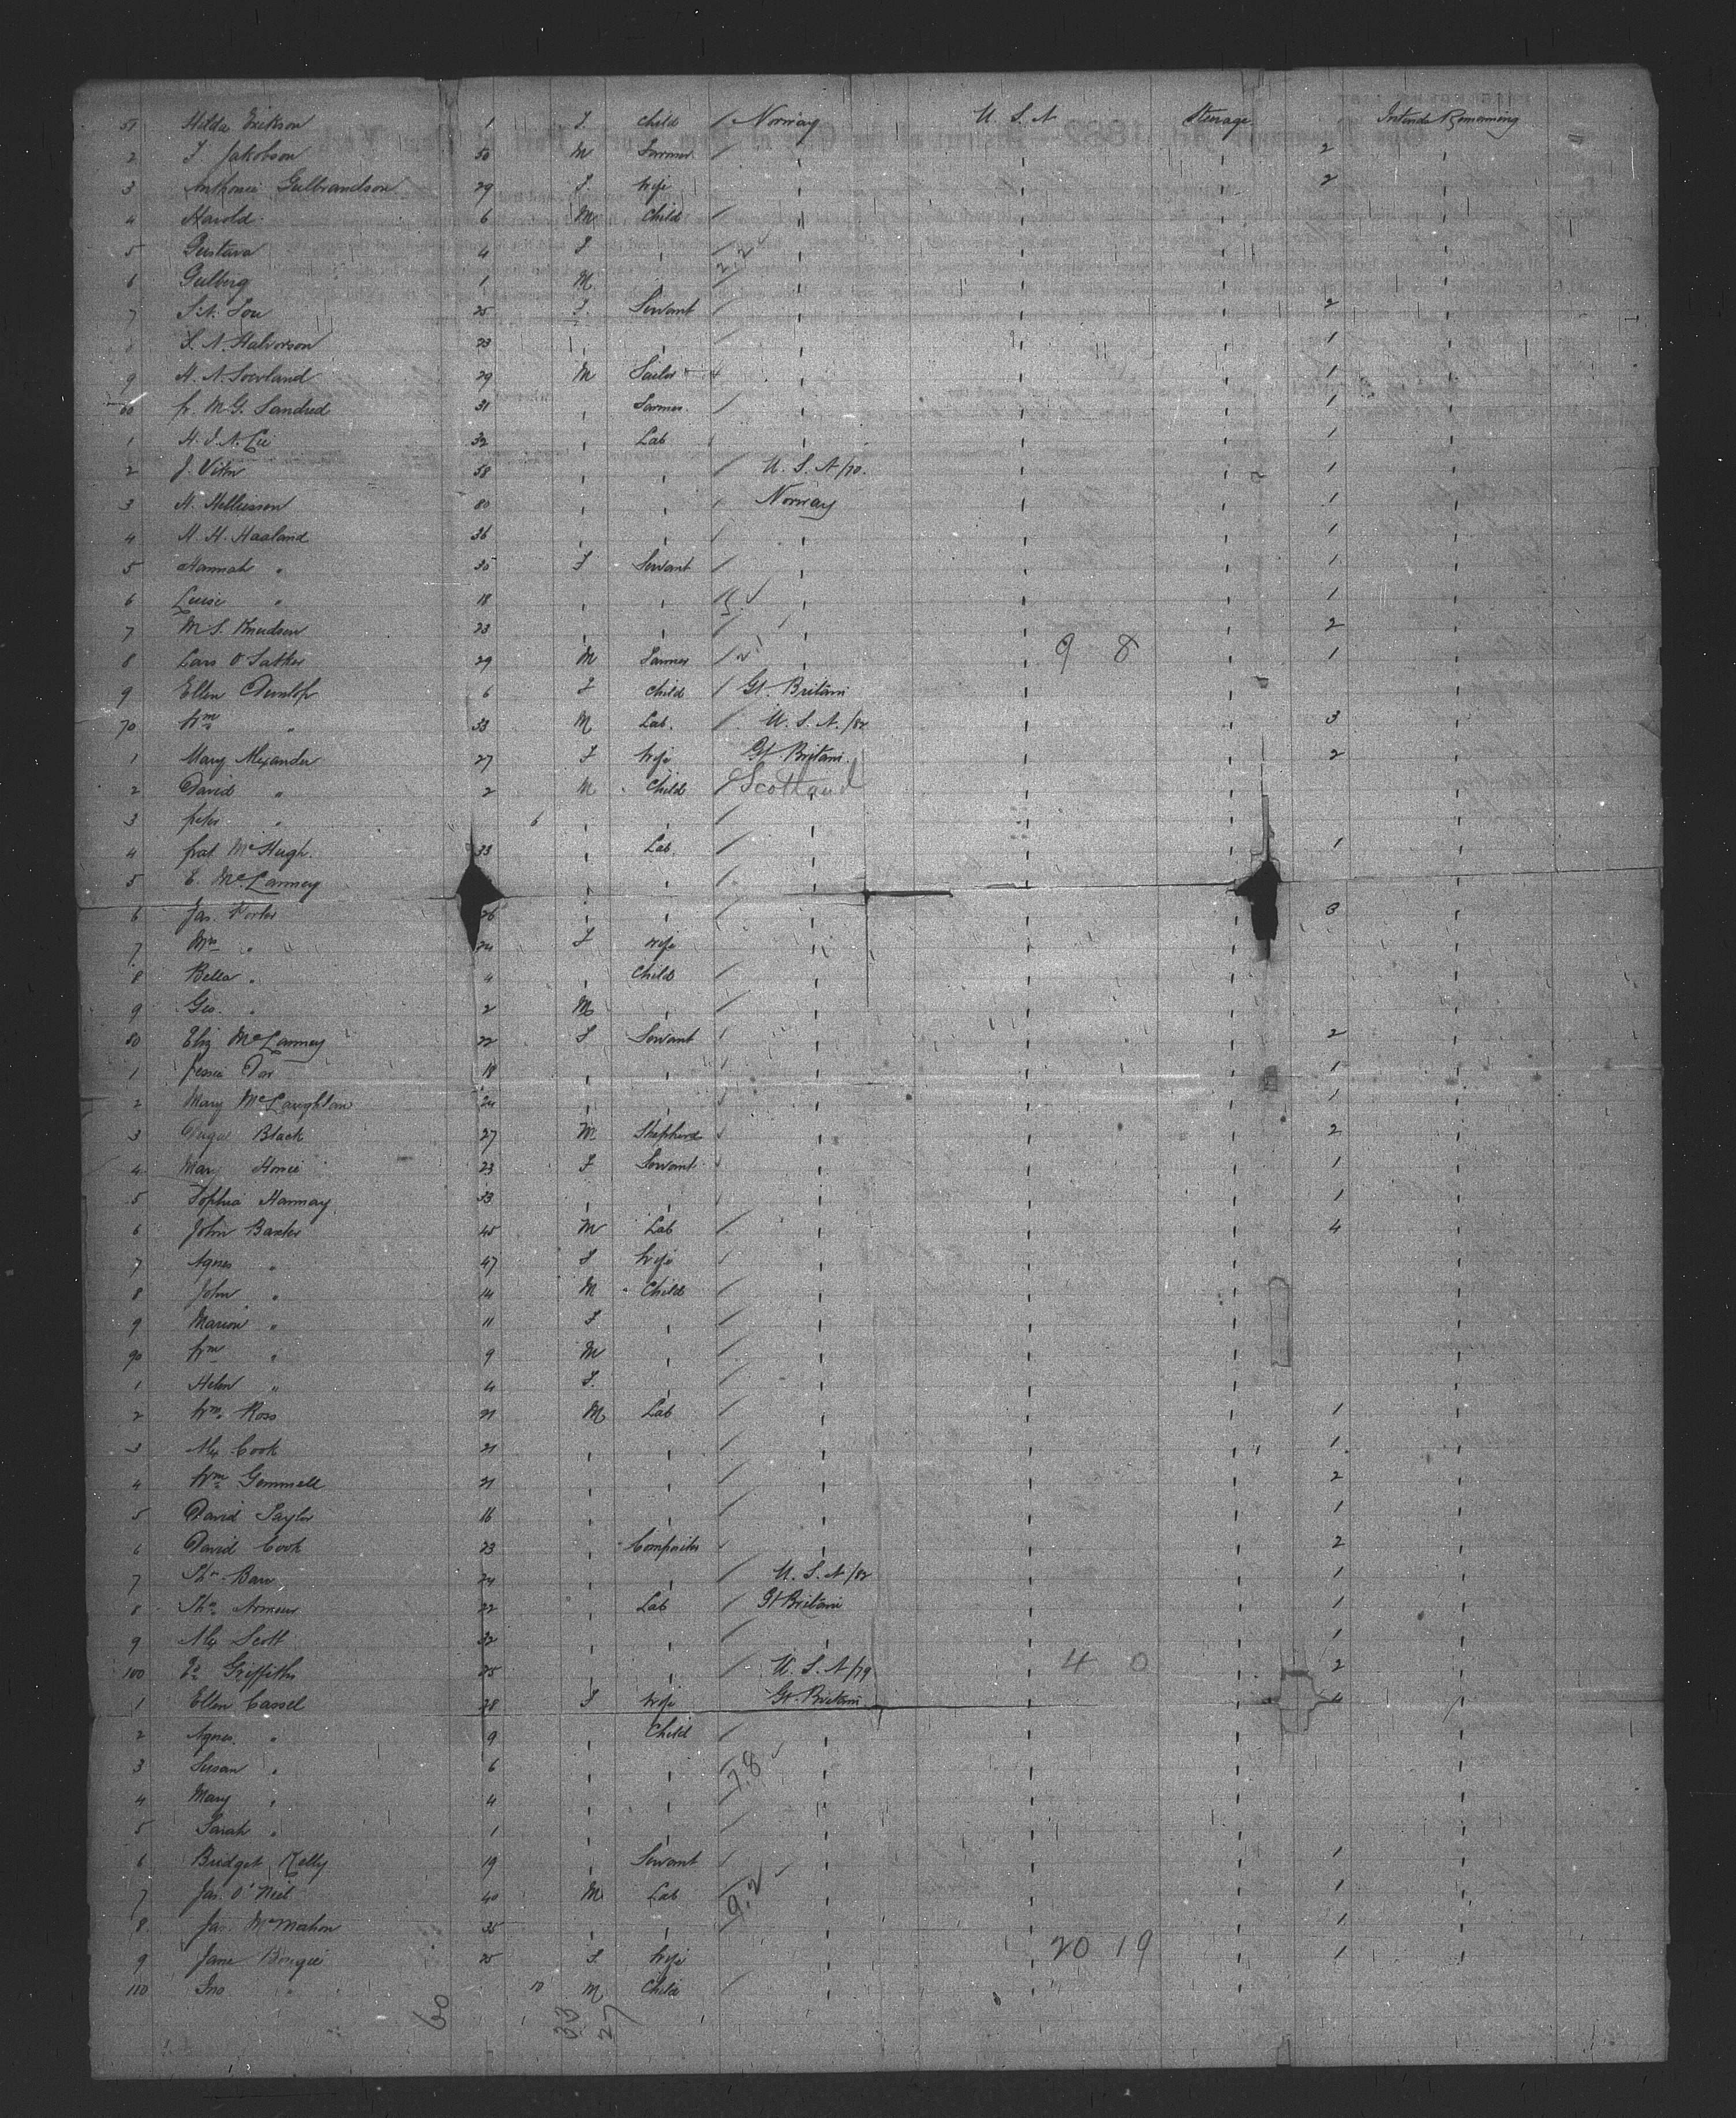 51 Hilda Erikson 1 F child / Norway U.S.A Steerage Intends Remaining
2 T. Jakobson 50 M Farmer / " " " 2 "
3 Gulbrandson 29 F. Wife " " " 2 "
4 Harold 6 M Child / " " " "
5 Gustava 4 F " / " " " "
6 Gulberg 1 M " / " " " "
7 25 F. Servant / " " " 2 "
8 Halvorson 23 " " / " " " 1 "
9 29 M Sailor " " " 1 "
60 M.G. 31 " Farmer. / " " " 1 "
1 32 " Lab " " " 1 "
2 J. 58 " " / U.S.A/70. " " 1 "
3 80 " " / Norway " " 1 "
4 H. H. Haaland 36 " " / " " " 1 "
5 Hannah " 35 F Servant / " " " 1 "
6 Luise " 18 " " / " " " 1 "
7 M S. Knudson 23 " " / " " " 2 "
8 Lars O 29 M Farmer / " " 9 8 " 1 "
9 Ellen Dunlop 6 F child / Gt. Britain " " "
70 Wm " 33 M Lab. / U.S.A./82 " " 3 "
1 Mary Alexander 27 F Wife Gt Britain. " " 2 "
2 David " 2 M Child / Scotland " " "
3 Peter " 6 " " / " " " "
4 Pat McHugh. 33 " Lab. / " " " 1 "
5 E. " " / " " " "
6 Jas. Porter 26 " " / " " " 3 "
7 Mrs " 24 F Wife " " " "
8 Bella " 4 " Child / " " " "
9 Geo. " 2 M " / " " " "
80 Eliz 22 F Servant / " " " 2 "
1 Jessie 18 " " / " " " 1 "
2 Mary McLaughlan 24 " " / " " " 1 "
3 Black 27 M Shepherd / " " " 2 "
4 Mary 23 F Servant / " " " 1 "
5 Sophia Hannay 33 " " / " " " 1 "
6 John Baxter 45 M Lab / " " " 4 "
7 Agnes " 47 F Wife / " " " "
8 John " 14 M Child / " " " "
9 Marion " 11 F " / " " " "
90 Wm " 9 M " / " " " "
1 Helen " 4 F. " / " " " "
2 Wm. Ross 21 M Lab / " " " 1 "
3 Alex Cook 21 " " / " " " 1 "
4 Wm Gemmell 21 " " / " " " 2 "
5 David Taylor 16 " " / " " " 1 "
6 David Cook 23 " Compositor / " " " 2 "
7 Thos. Barr 24 " " / U.S.A/82 " " 1 "
8 Thos. Armour 22 " Lab / Gt Britain " " 1 "
9 Alex Scott 32 " " / " " " 1 "
100 Griffiths 25 " " / U.S.A/79 " 4 0 " 2 "
1 Ellen Cassel 28 F Wife Gt. Britain " " 4 "
2 Agnes " 9 " Child / " " " "
3 Susan " 6 " " / " " " "
4 Mary " 4 " " / 78 " " " "
5 Sarah " 1 " " / " " " "
6 Bridget Kelly 19 " Servant / " " " 1 "
7 Jas. O'Neil 40 M Lab / 92 " " " 1 "
8 Jas. McMahon 35 " " / " " " 1 "
9 Jane 25 F. Wife " " 20 19 " 1 "
110 Jno " 10 M Child / " " " "
60 33 27